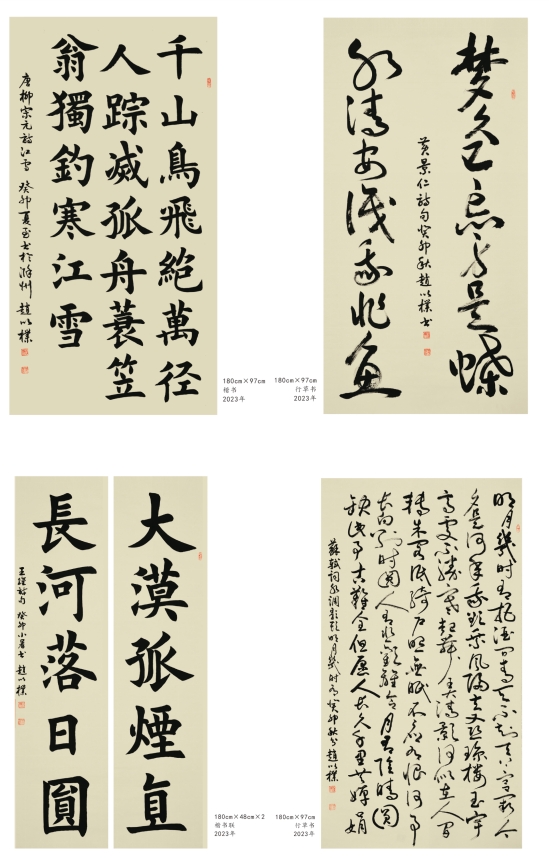 千山鳥飛絶萬径
人踪滅孤舟蓑笠
翁獨釣寒江雪
唐柳宗元詩江雪 癸卯夏至书於滁州 趙以樸
180cm×97cm
楷书
2023年
梦久已忘身是蝶
水清安識我非魚
黄景仁詩句癸卯秋趙以樸书
180cm×97cm
行草书
2023年
大漠孤煙直
長河落日圓
王維詩句 癸卯小暑书 趙以樸
180cm×48cm×2
楷书联
2023年
明月幾时有把酒问青天不知天上宫阙今
夕是何年我欲乘風歸去又恐琼樓玉宇
高處不勝寒起舞弄清影何似在人間
轉朱阁低綺户照無眠不應有恨何事
長向别时圓人有悲歡離合月有陰晴圓
缺此事古難全但願人長久千里共嬋娟
蘇軾詞水調歌頭明月幾时有癸卯秋分趙以樸
180cm×97cm
行草书
2023年